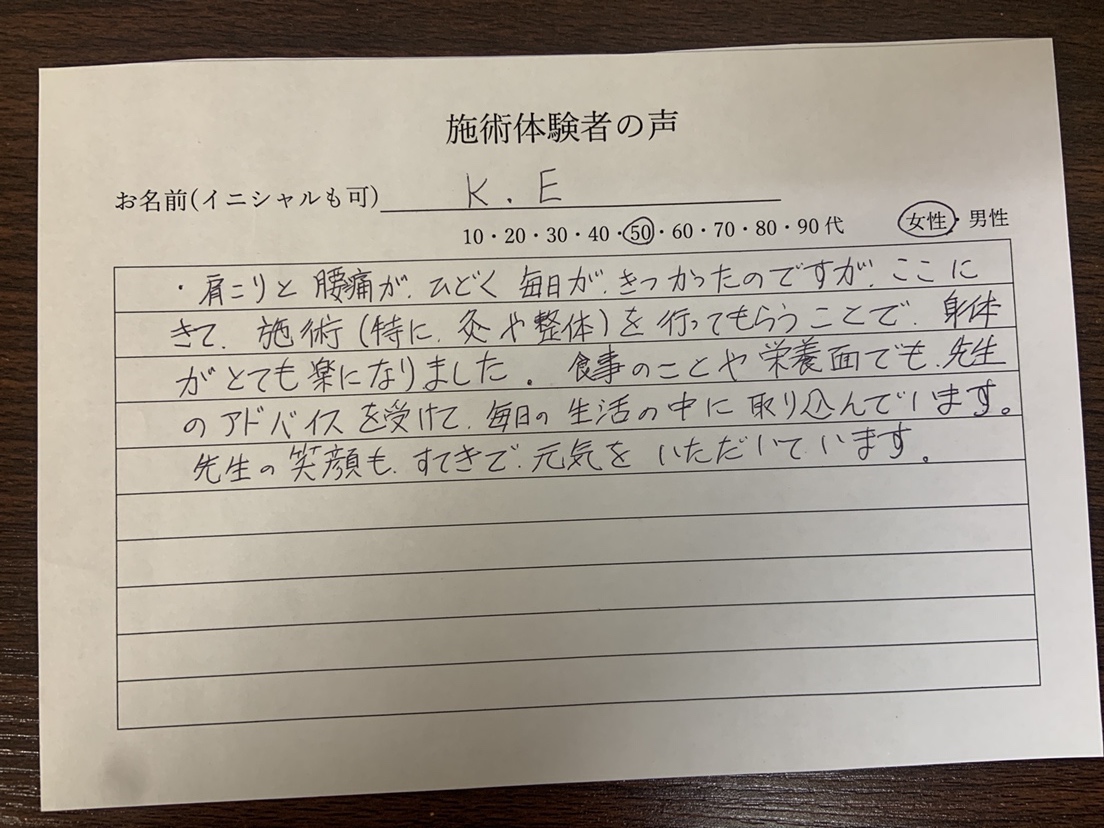 施術体験者の声
お名前(イニシャルも可) K.E
10・20・30・40・50・60・70・80・90代 女性・男性
・肩こりと腰痛が、ひどく毎日が、きつかったのですが、ここに
きて、施術(特に、灸や整体)を行ってもらうことで、身体
がとても楽になりました。食事のことや栄養面でも、先生
のアドバイスを受けて、毎日の生活の中に取り込んでいます。
先生の笑顔も、すてきで、元気をいただいています。